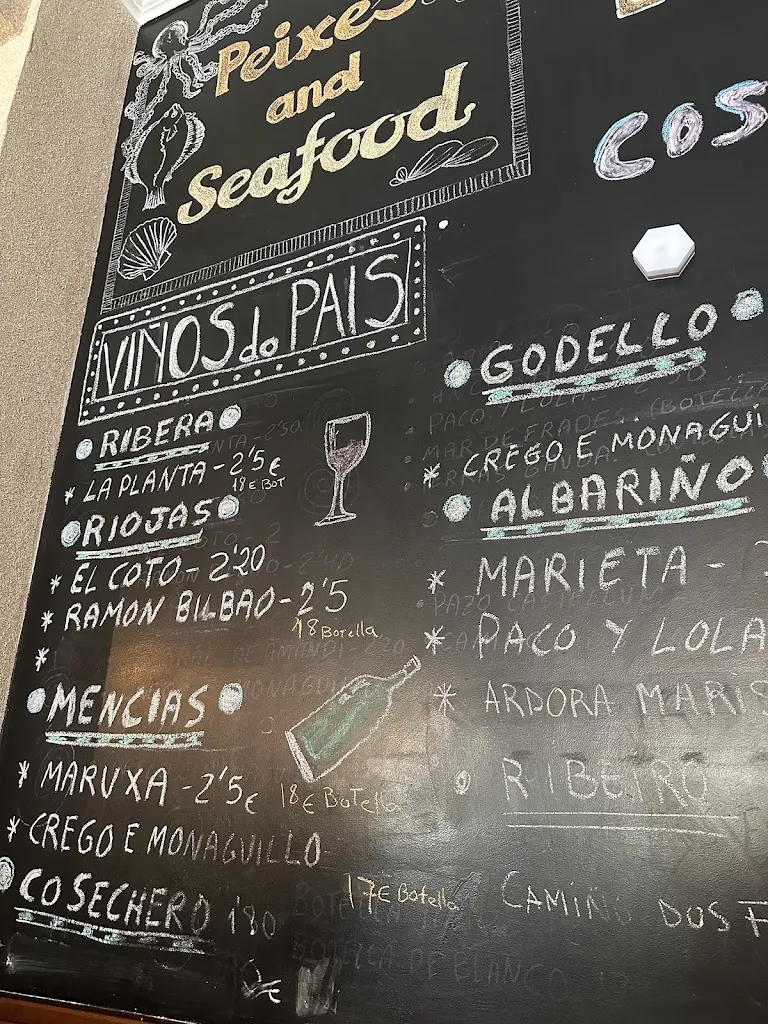 Peixes
and
Seafood
COS
VINOS do PAIS
RIBERA
* LA PLANTA - 2'5€
18€ BOT
RIOJAS
* EL COTO - 2'20
* RAMON BILBAO - 2'5
18 Botella
*
MENCIAS
* MARUXA - 2'5€ 18€ BoTella
* CREGO E MONAGUILLO
17€ Botella
COSECHERO 1'80
GODELLO
* CREGO E MONAGUI
ALBARIÑO
* MARIETA -
* PACO Y LOLA
* ARDORA MARIS
RIBEIRO
CAMIÑO DOS F
BOTELLA DE BLANCO